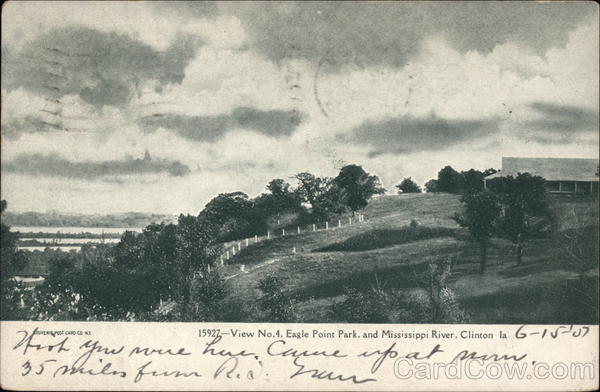 SOUVENIR POST CARD CO. N.Y.
15927—View No. 4. Eagle Point Park. and Mississippi River. Clinton Ia 6-15'07
Wish you were here. Came up at noon.
35 miles from R.I.
CardCow.com